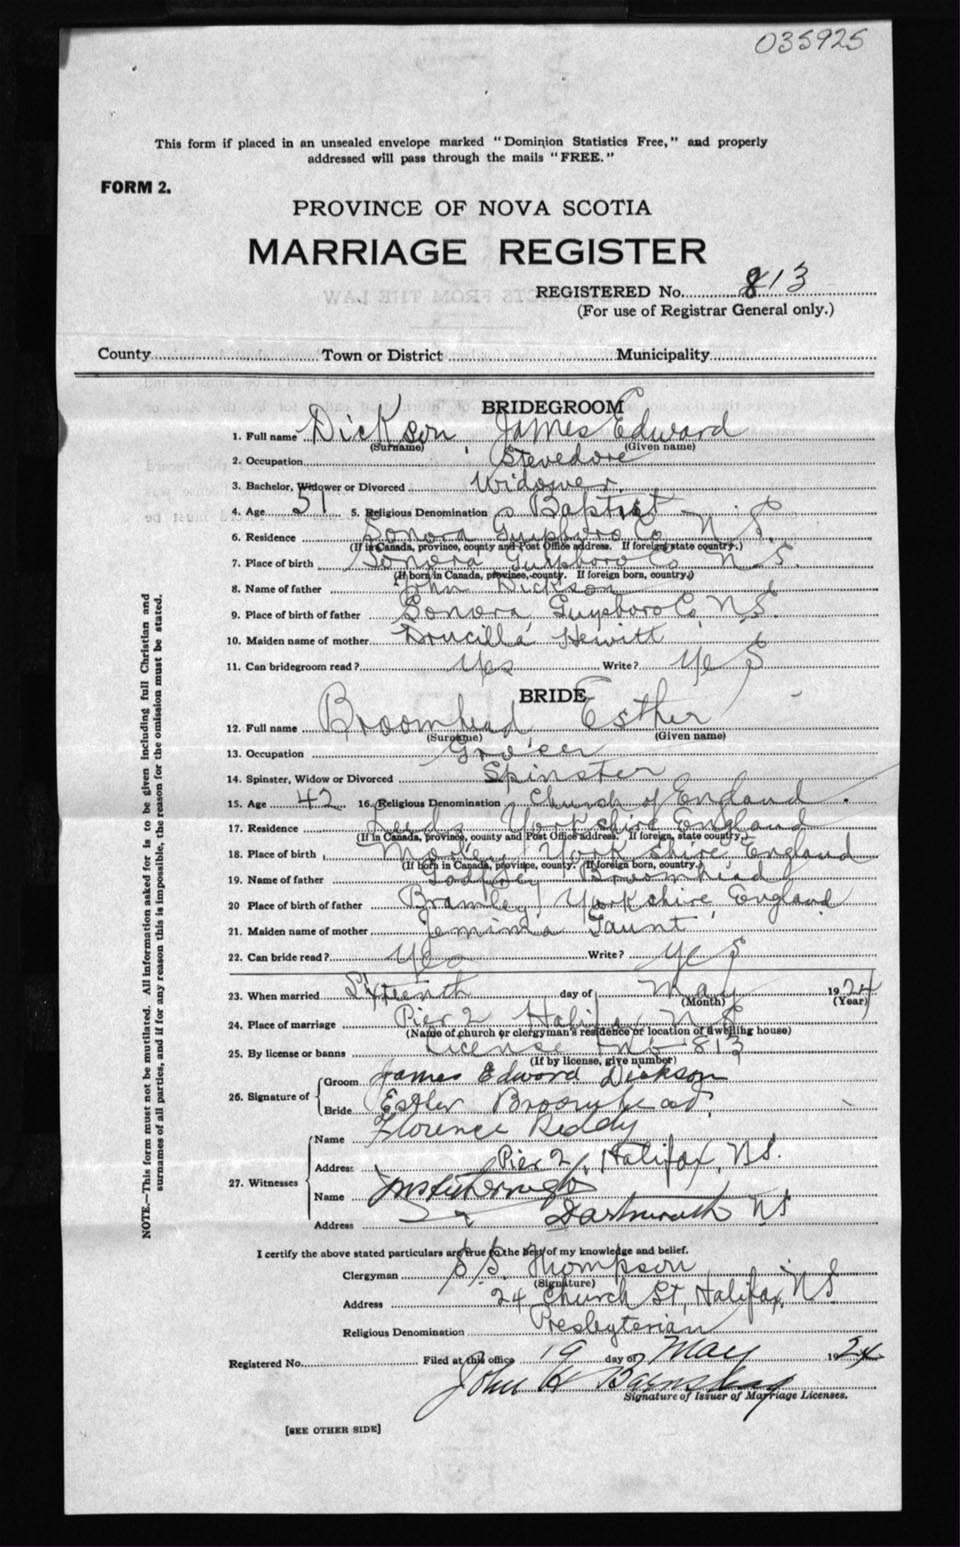 035925
This form if placed in an unsealed envelope marked "Dominion Statistics Free," and properly
addressed will pass through the mails "FREE."
FORM 2.
PROVINCE OF NOVA SCOTIA
MARRIAGE REGISTER
REGISTERED No. 813
(For use of Registrar General only.)
County Town or District Municipality
BRIDEGROOM
1. Full name Dickson, James Edward
(Surname) (Given name)
2. Occupation Stevedore
3. Bachelor, Widower or Divorced Widower.
4. Age 51 5. Religious Denomination Baptist
6. Residence Sonora Guysboro Co. N.S.
(If in Canada, province, county and Post Office address. If foreign state country.)
7. Place of birth Sonora Guysboro Co N.S.
(If born in Canada, province, county. If foreign born, country.)
8. Name of father John Dickson
9. Place of birth of father Sonora Guysboro Co, N.S.
10. Maiden name of mother Drucilla Hewitt
11. Can bridegroom read? Yes Write? Yes
BRIDE
12. Full name Broomhead, Esther
(Surname) (Given name)
13. Occupation Grocer
14. Spinster, Widow or Divorced Spinster
15. Age 42 16. Religious Denomination Church of England.
17. Residence Leeds Yorkshire England
(If in Canada, province, county and Post Office address. If foreign, state country.)
18. Place of birth Morley Yorkshire England
(If born in Canada, province, county. If foreign born, country.)
19. Name of father Godfrey Broomhead
20 Place of birth of father Bramley Yorkshire England
21. Maiden name of mother Jemima Gaunt
22. Can bride read? Yes Write? Yes
23. When married Sixteenth day of May 1924
(Month) (Year)
24. Place of marriage Pier 2 Halifax N.S.
(Name of church or clergyman's residence or location of dwelling house)
25. By license or banns License No 813
(If by license, give number)
26. Signature of
Groom James Edward Dickson
Bride Esther Broomhead,
27. Witnesses
Name Florence Reddy
Address Pier 2, Halifax, N.S.
Name
Address Dartmouth NS
I certify the above stated particulars are true to the best of my knowledge and belief.
Clergyman Thompson
(Signature)
Address 24 Church St, Halifax, N.S.
Religious Denomination Presbyterian
Registered No. Filed at this office 19 day of May 1924
John H
Signature of Issuer of Marriage Licenses.
[SEE OTHER SIDE]
NOTE.—This form must not be mutilated. All information asked for is to be given including full Christian and
surnames of all parties, and if for any reason this is impossible, the reason for the omission must be stated.